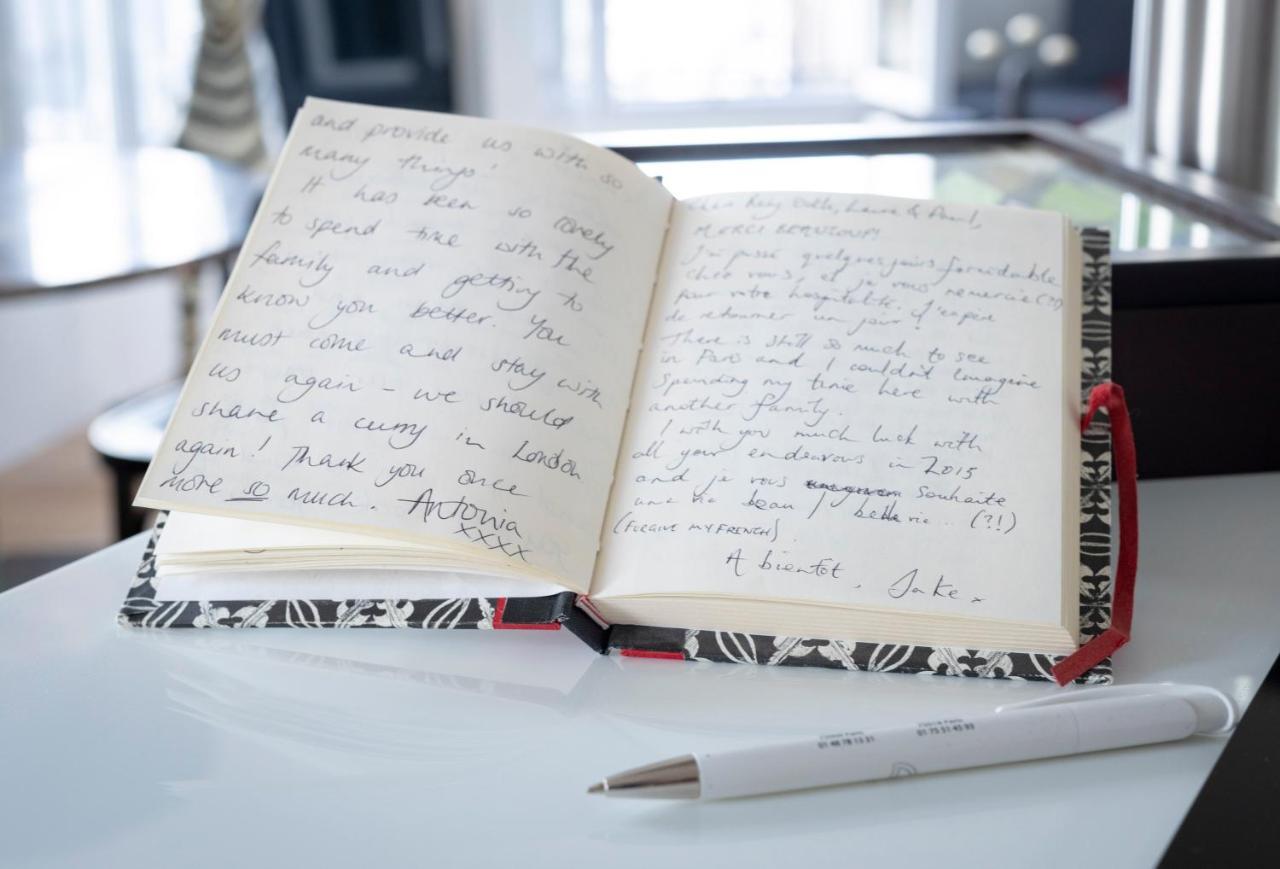 and provide us with so
many things!
It has been so lovely
to spend time with the
family and getting to
know you better. You
must come and stay with
us again - we should
share a curry in London
again! Thank you once
more so much. Antonia
xxxx
Laura & Paul,
MERCI BEAUCOUP!
J'ai passé quelques jours formidable
chez vous, et je vous remercie (?!)
pour votre hospitalité. J'espère
de retourner un jour!
There is still so much to see
in Paris and I couldn't imagine
spending my time here with
another family.
I wish you much luck with
all your endeavours in 2015
and je vous souhaite
une vie beau / belle vie... (?!)
(FORGIVE MY FRENCH)
A bientot, Jake x
01 48 78 13 31